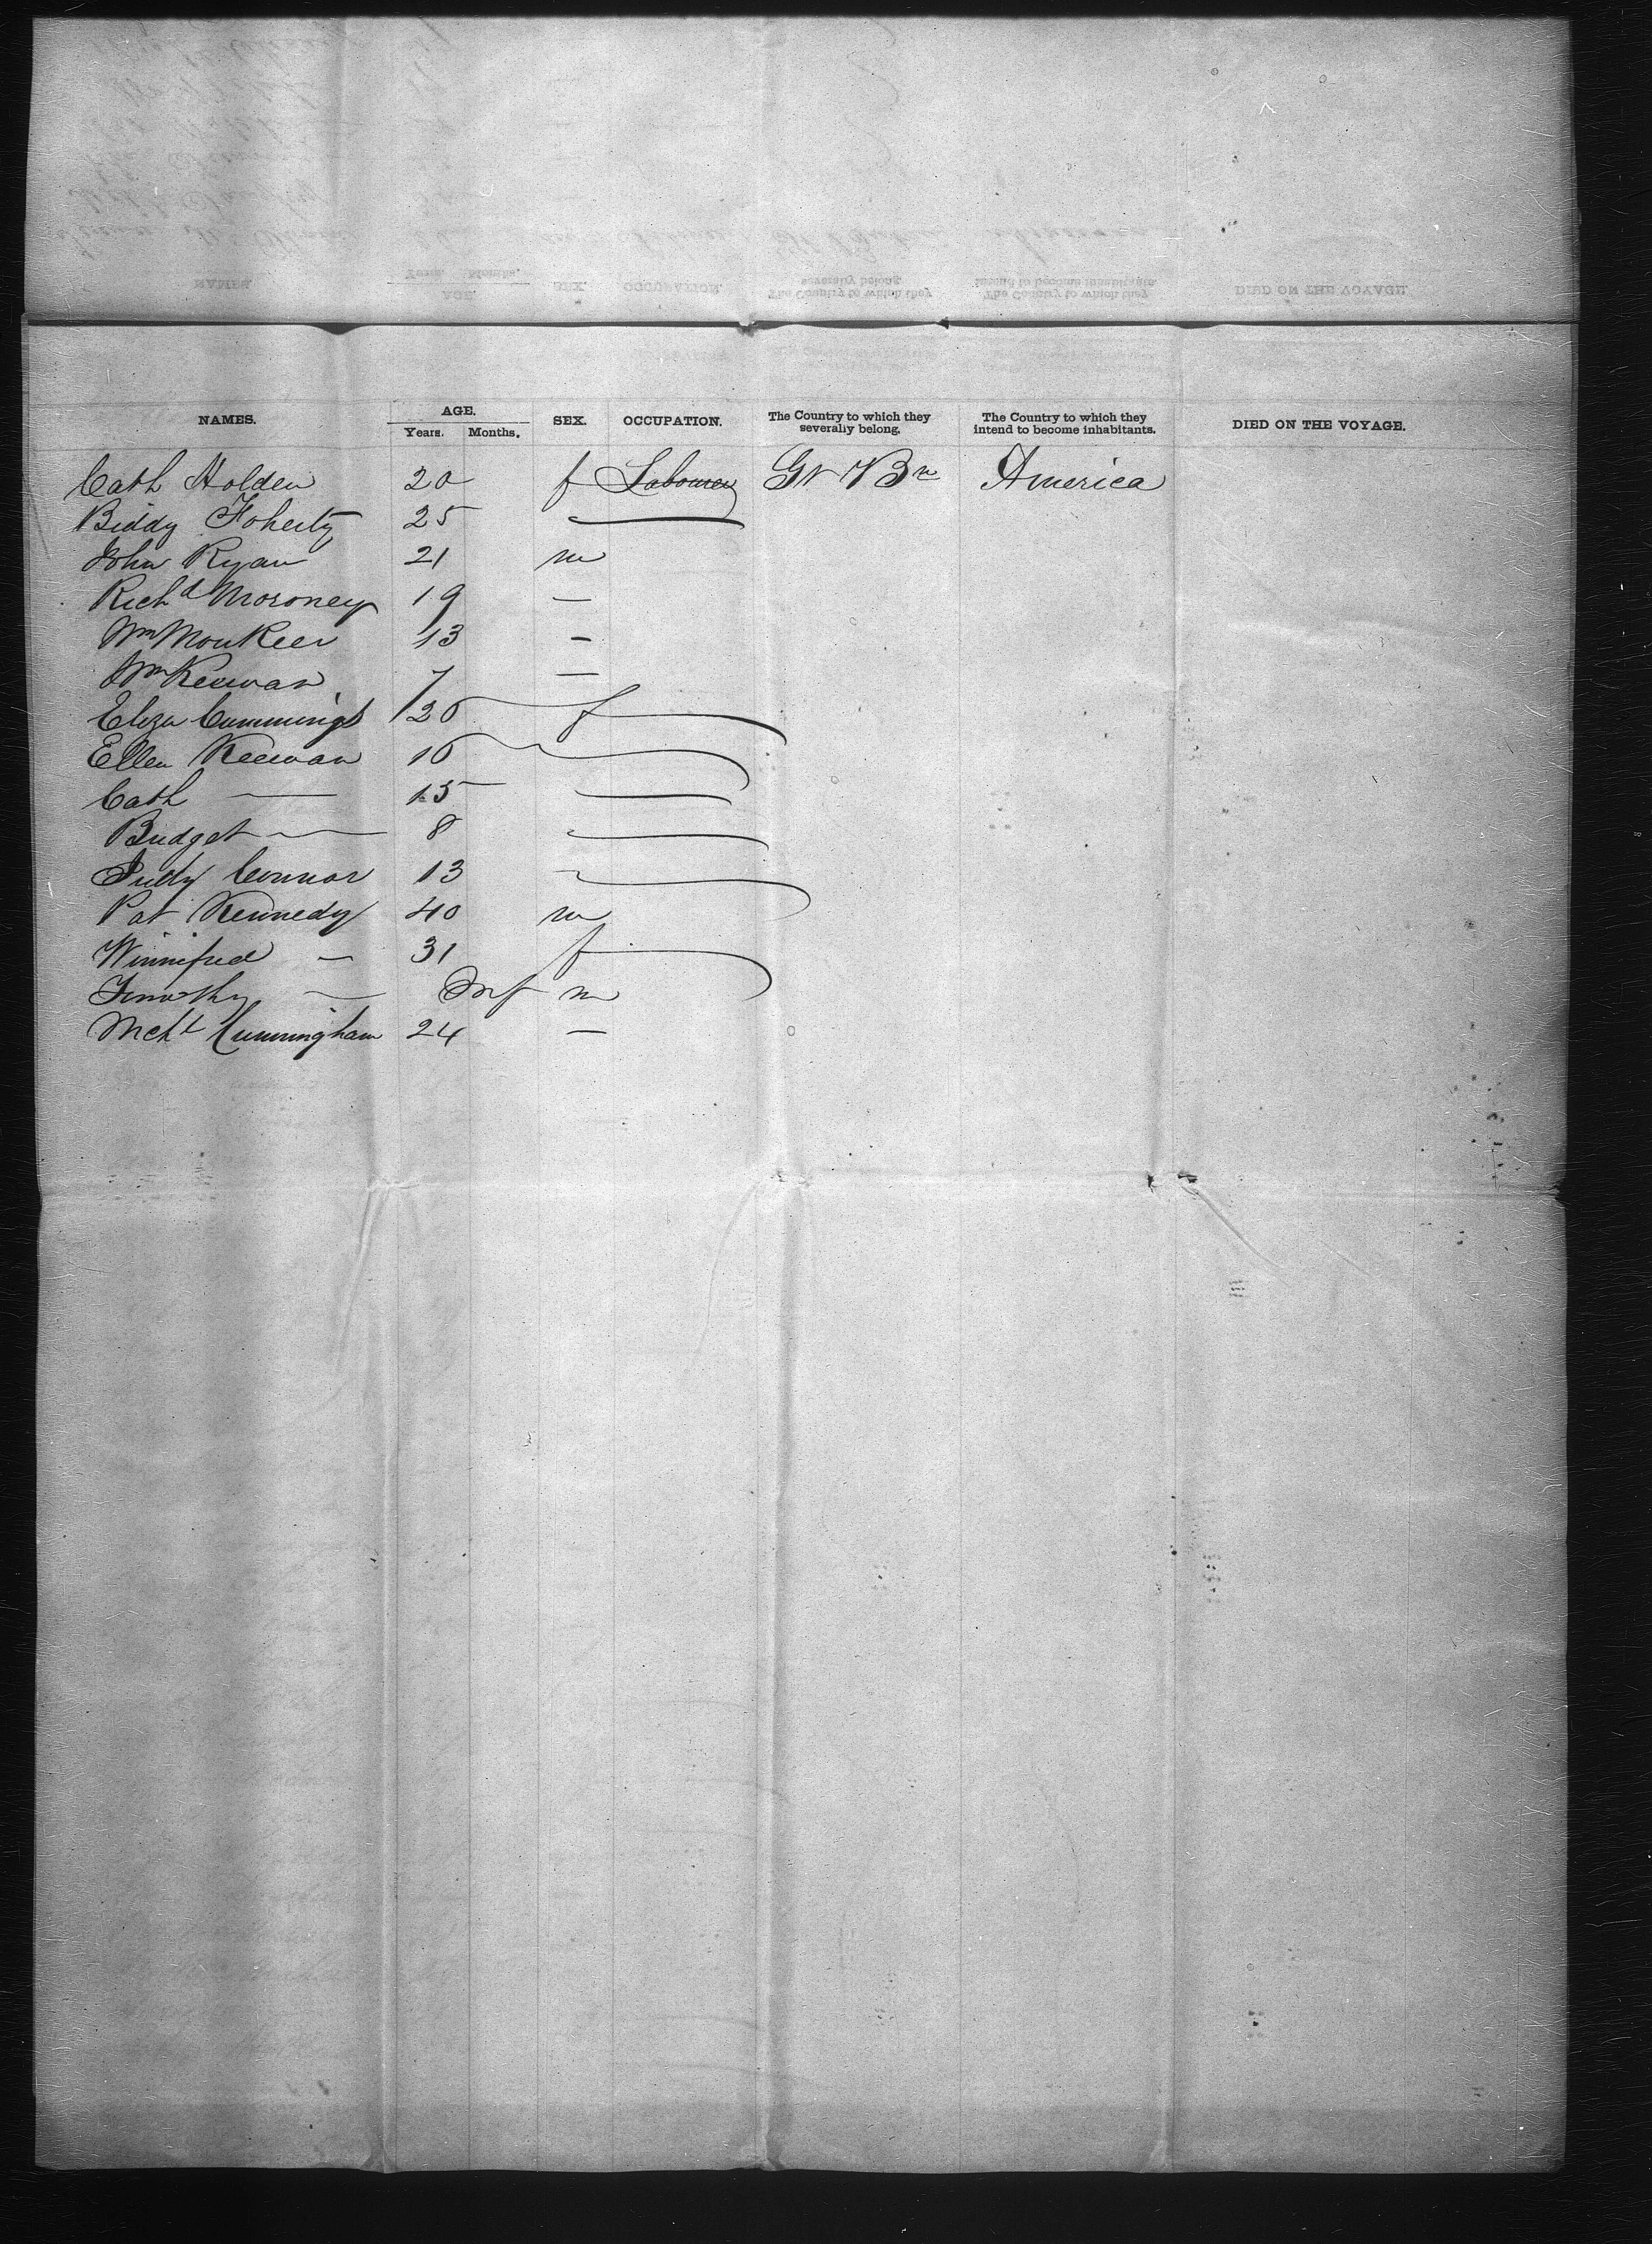 NAMES. AGE. Years. Months. SEX. OCCUPATION. The Country to which they severally belong. The Country to which they intend to become inhabitants. DIED ON THE VOYAGE.
Cath Holden 20 f Labourer Gt Bn America
Biddy Foherty 25
John Ryan 21 m
Richd Moroney 19 —
Wm Monkeer 13 —
Wm Keewan 7 —
Eliza Cummings 20 f
Ellen Keewan 16
Cath — 15
Bridget — 8
Judy Connor 13
Pat Kennedy 40 m
Winnifred — 31 f
Timothy — Inf m
Michl Cunningham 24 —